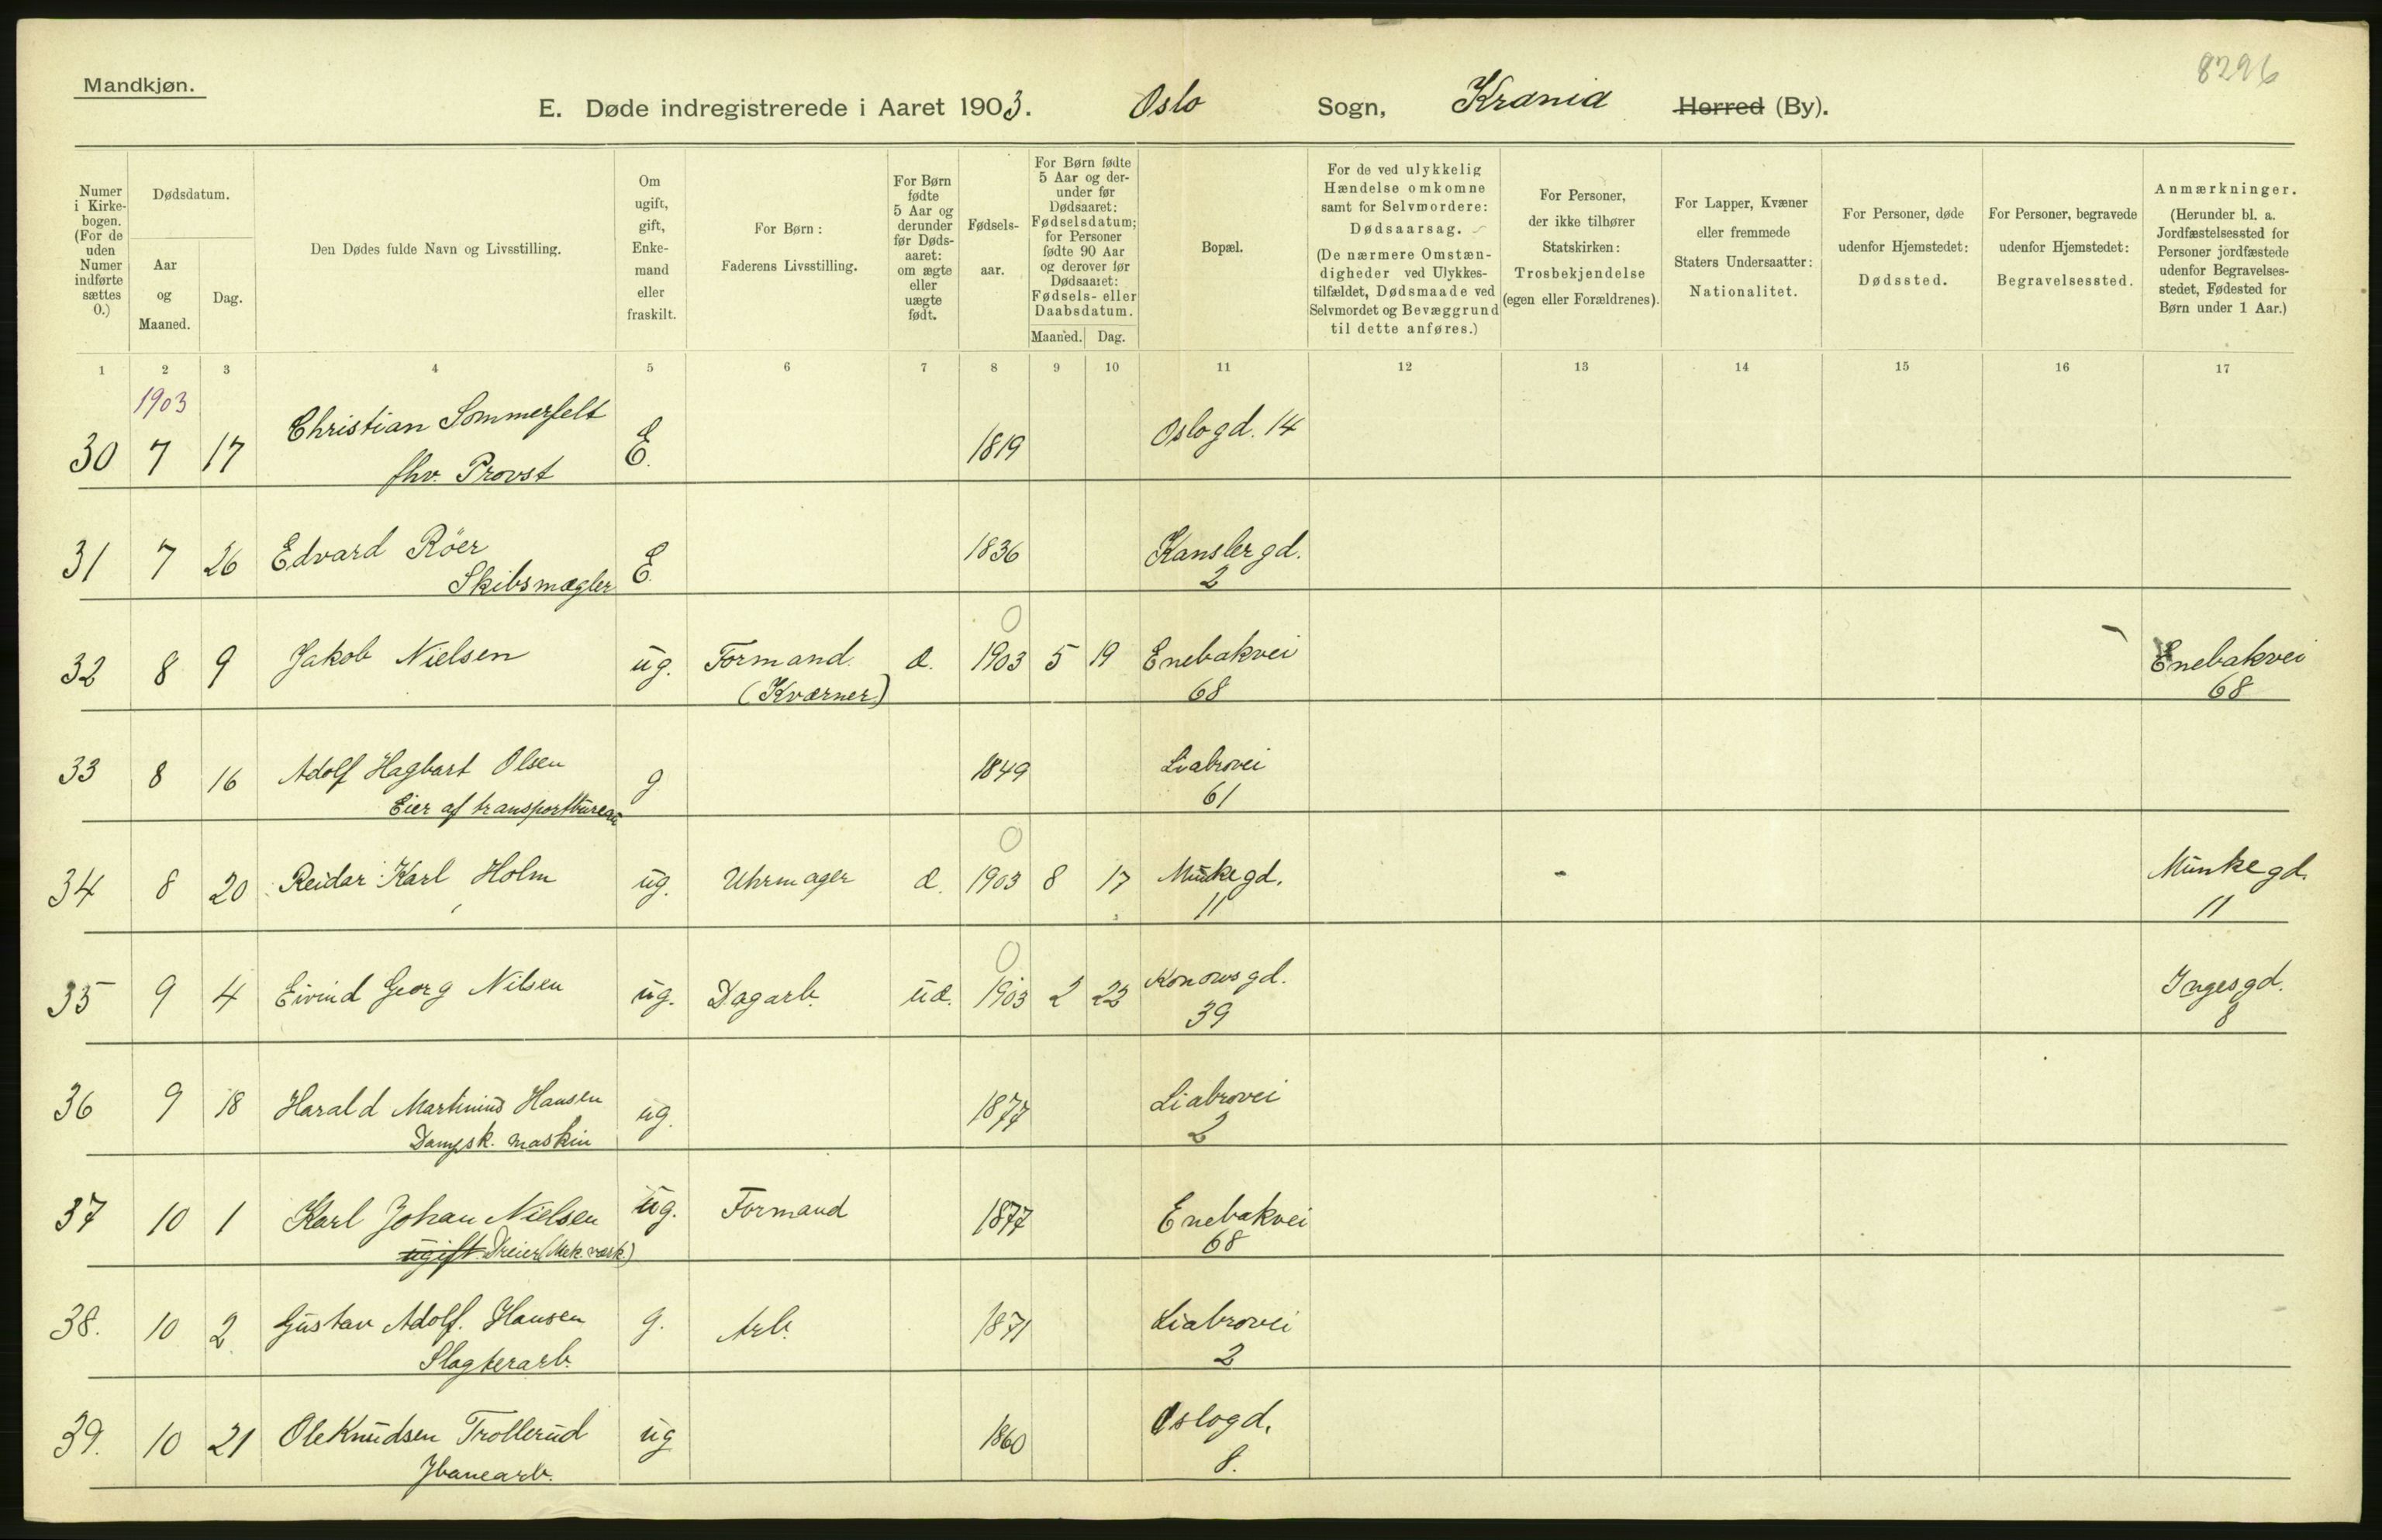 8296
Mandkjøn.
E. Døde indregistrerede i Aaret 1903. Oslo Sogn, Krania Herred (By).
Numer i Kirkebogen. (For de uden Numer indførte sættes 0.)
Dødsdatum.
Aar og Maaned.
Dag.
Den Dødes fulde Navn og Livsstilling.
Om ugift, gift, Enkemand eller fraskilt.
For Børn: Faderens Livsstilling.
For Børn fødte 5 Aar og derunder før Dødsaaret: om ægte eller uægte født.
Fødselsaar.
For Børn fødte 5 Aar og derunder før Dødsaaret: Fødselsdatum; for Personer fødte 90 Aar og derover før Dødsaaret: Fødsels- eller Daabsdatum.
Maaned. Dag.
Bopæl.
For de ved ulykkelig Hændelse omkomne samt for Selvmordere: Dødsaarsag.
(De nærmere Omstændigheder ved Ulykkestilfældet, Dødsmaade ved Selvmordet og Bevæggrund til dette anføres.)
For Personer, der ikke tilhører Statskirken: Trosbekjendelse (egen eller Forældrenes).
For Lapper, Kvæner eller fremmede Staters Undersaatter: Nationalitet.
For Personer, døde udenfor Hjemstedet: Dødssted.
For Personer, begravede udenfor Hjemstedet: Begravelsessted.
Anmærkninger. (Herunder bl. a. Jordfæstelsessted for Personer jordfæstede udenfor Begravelsesstedet, Fødested for Børn under 1 Aar.)
1 2 3 4 5 6 7 8 9 10 11 12 13 14 15 16 17
1903
30 7 17 Christian Sommerfelt E. 1819 Oslogd. 14
fhv. Provst
31 7 26 Edvard Röer E. 1836 Kanslergd.
Skibsmægler 2
32 8 9 Jakob Nielsen ug. Formand æ. 1903 5 19 Enebakvei Enebakvei
(Kværner) 68 68
33 8 16 Adolf Hagbart Olsen g 1849 Liabrovei
Eier af transportbureau 61
34 8 20 Reidar Karl Holm ug. Uhrmager æ. 1903 8 17 Munkegd. Munkegd.
11 11
35 9 4 Eivind Georg Nilsen ug. Dagarb. uæ. 1903 2 23 Konowsgd. Ingesgd.
39 8
36 9 18 Harald Martinius Hansen ug. 1877 Liabrovei
Dampsk. maskin 2
37 10 1 Karl Johan Nielsen ug. Formand 1877 Enebakvei
ugift Dreier (Mek. værk.) 68
38. 10 2 Gustav Adolf. Hansen g. Arb. 1871 Liabrovei
Slagterarb. 2
39. 10 21 Ole Knudsen Trollerud ug 1860 Oslogd.
Jbanearb. 8.